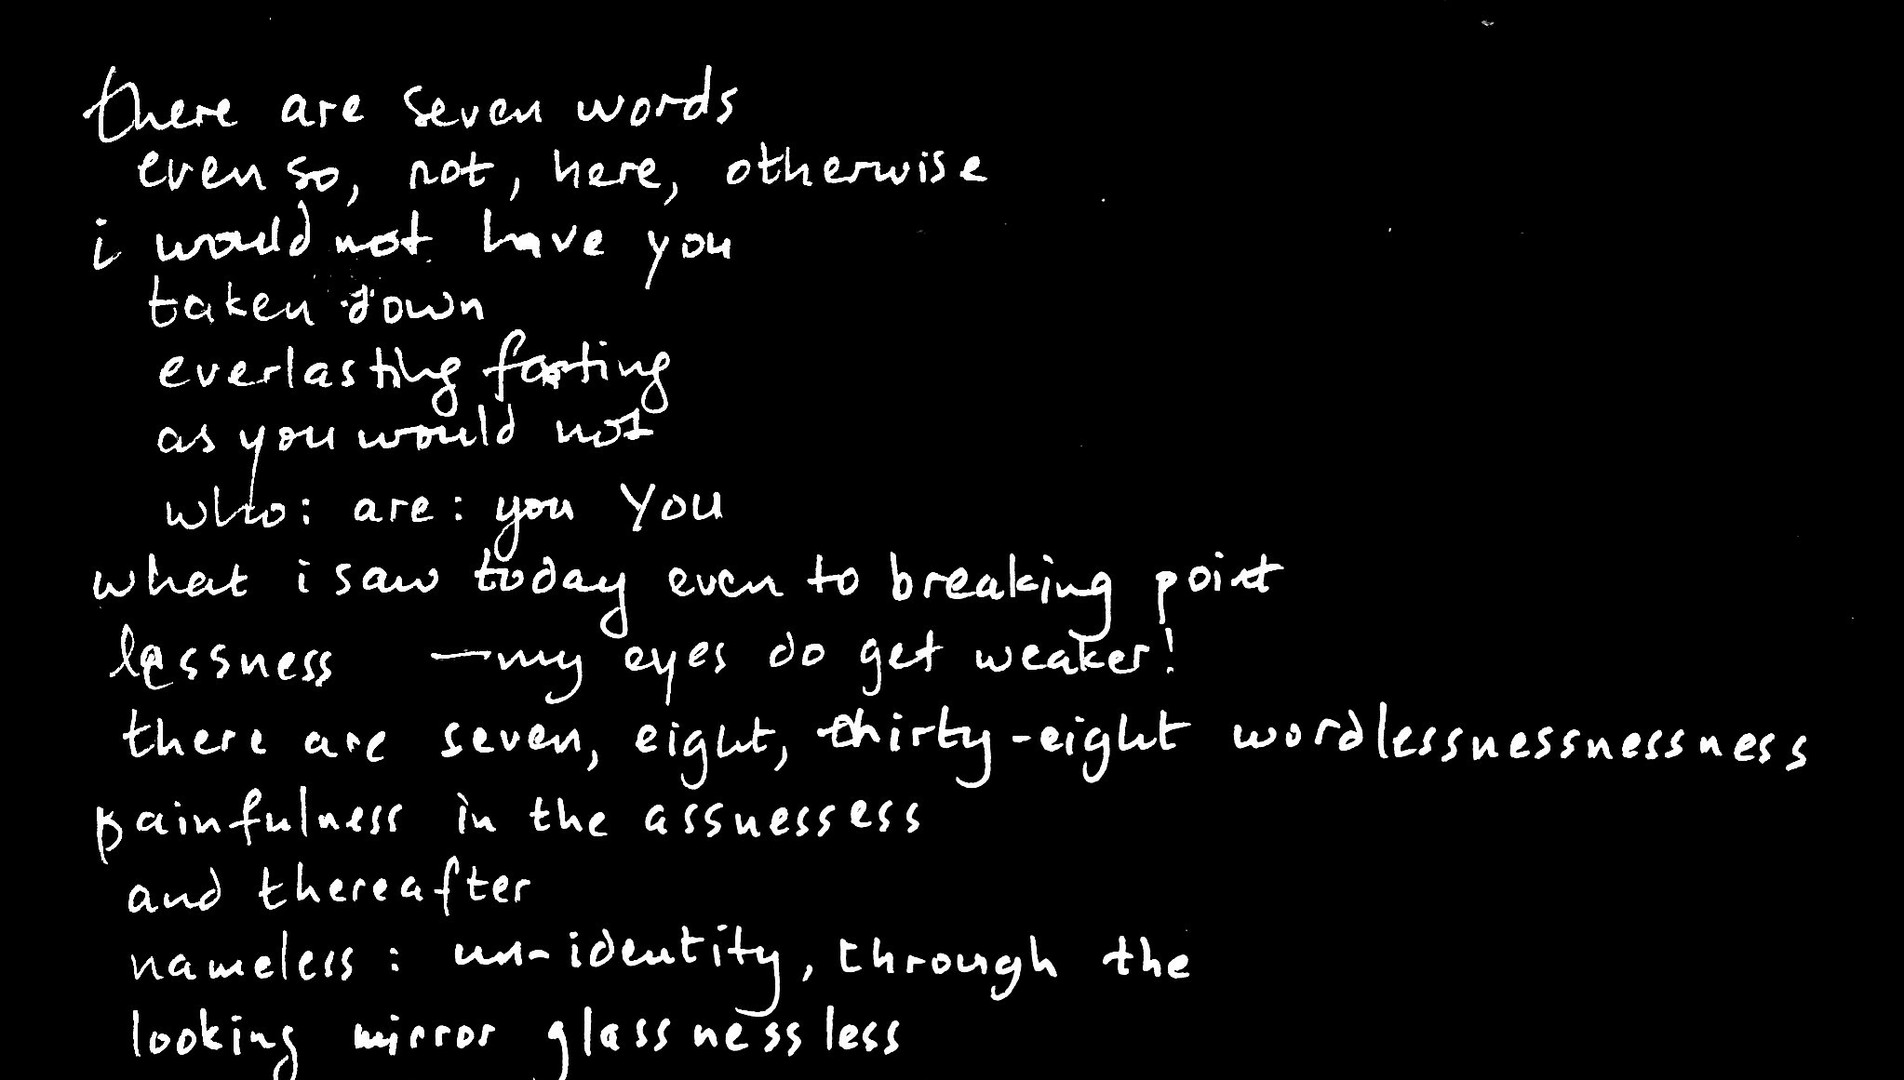 there are seven words
even so, not, here, otherwise
i would not have you
taken down
everlasting farting
as you would not
who: are: you You
what i saw today even to breaking point
lessness —my eyes do get weaker!
there are seven, eight, thirty-eight wordlessnessnessness
painfulness in the assnessess
and thereafter
nameless: un-identity, through the
looking mirror glassnessless